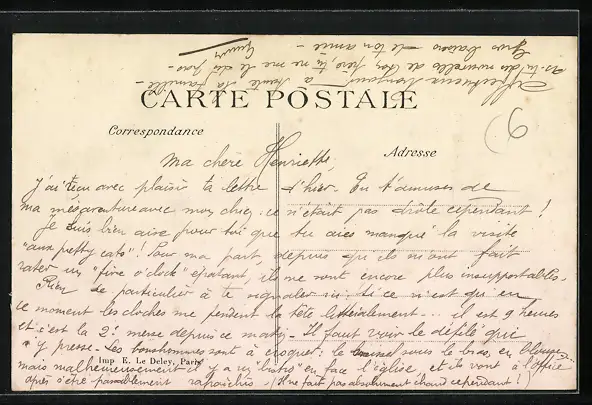 Affectueux bonjour à toute ta famille -
as-tu des nouvelles de ton père, tu ne me le dis pas -
Gros baisers - de ton amie -
CARTE POSTALE
Correspondance
Adresse
9
Ma chère Henriette,
J'ai reçu avec plaisir ta lettre d'hier. Tu t'amuses de
ma mésaventure avec mon chez: ce n'était pas drôle cependant!
Je suis bien aise pour toi que tu aies manqué la visite
"aux pretty cats"! Pour ma part, depuis qu'ils m'ont fait
rater un "five o'clock" épatant, ils me sont encore plus insupportables.
Rien de particulier à te signaler ici si ce n'est qu'en
ce moment les cloches me fendent la tête littéralement... il est 9 heures
et c'est la 2e messe depuis ce matin. Il faut voir le défilé qui
s'y presse. Les bonshommes sont à croquer: le sous le bras, en blouse
Imp. E. Le Deley, Paris
mais malheureusement il y a un "bistro" en face l'église, et ils vont à l'office
après s'être passablement rafraîchis. (Il ne fait pas absolument chaud cependant!)